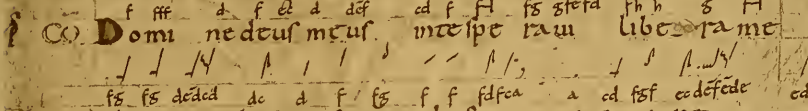 f fff d f d def cd f fg gfefd fh h g
CO Domi ne deus meus inte spe raui libera me
fg fg dedcd dc d f fg f f fdfca a cd fgf